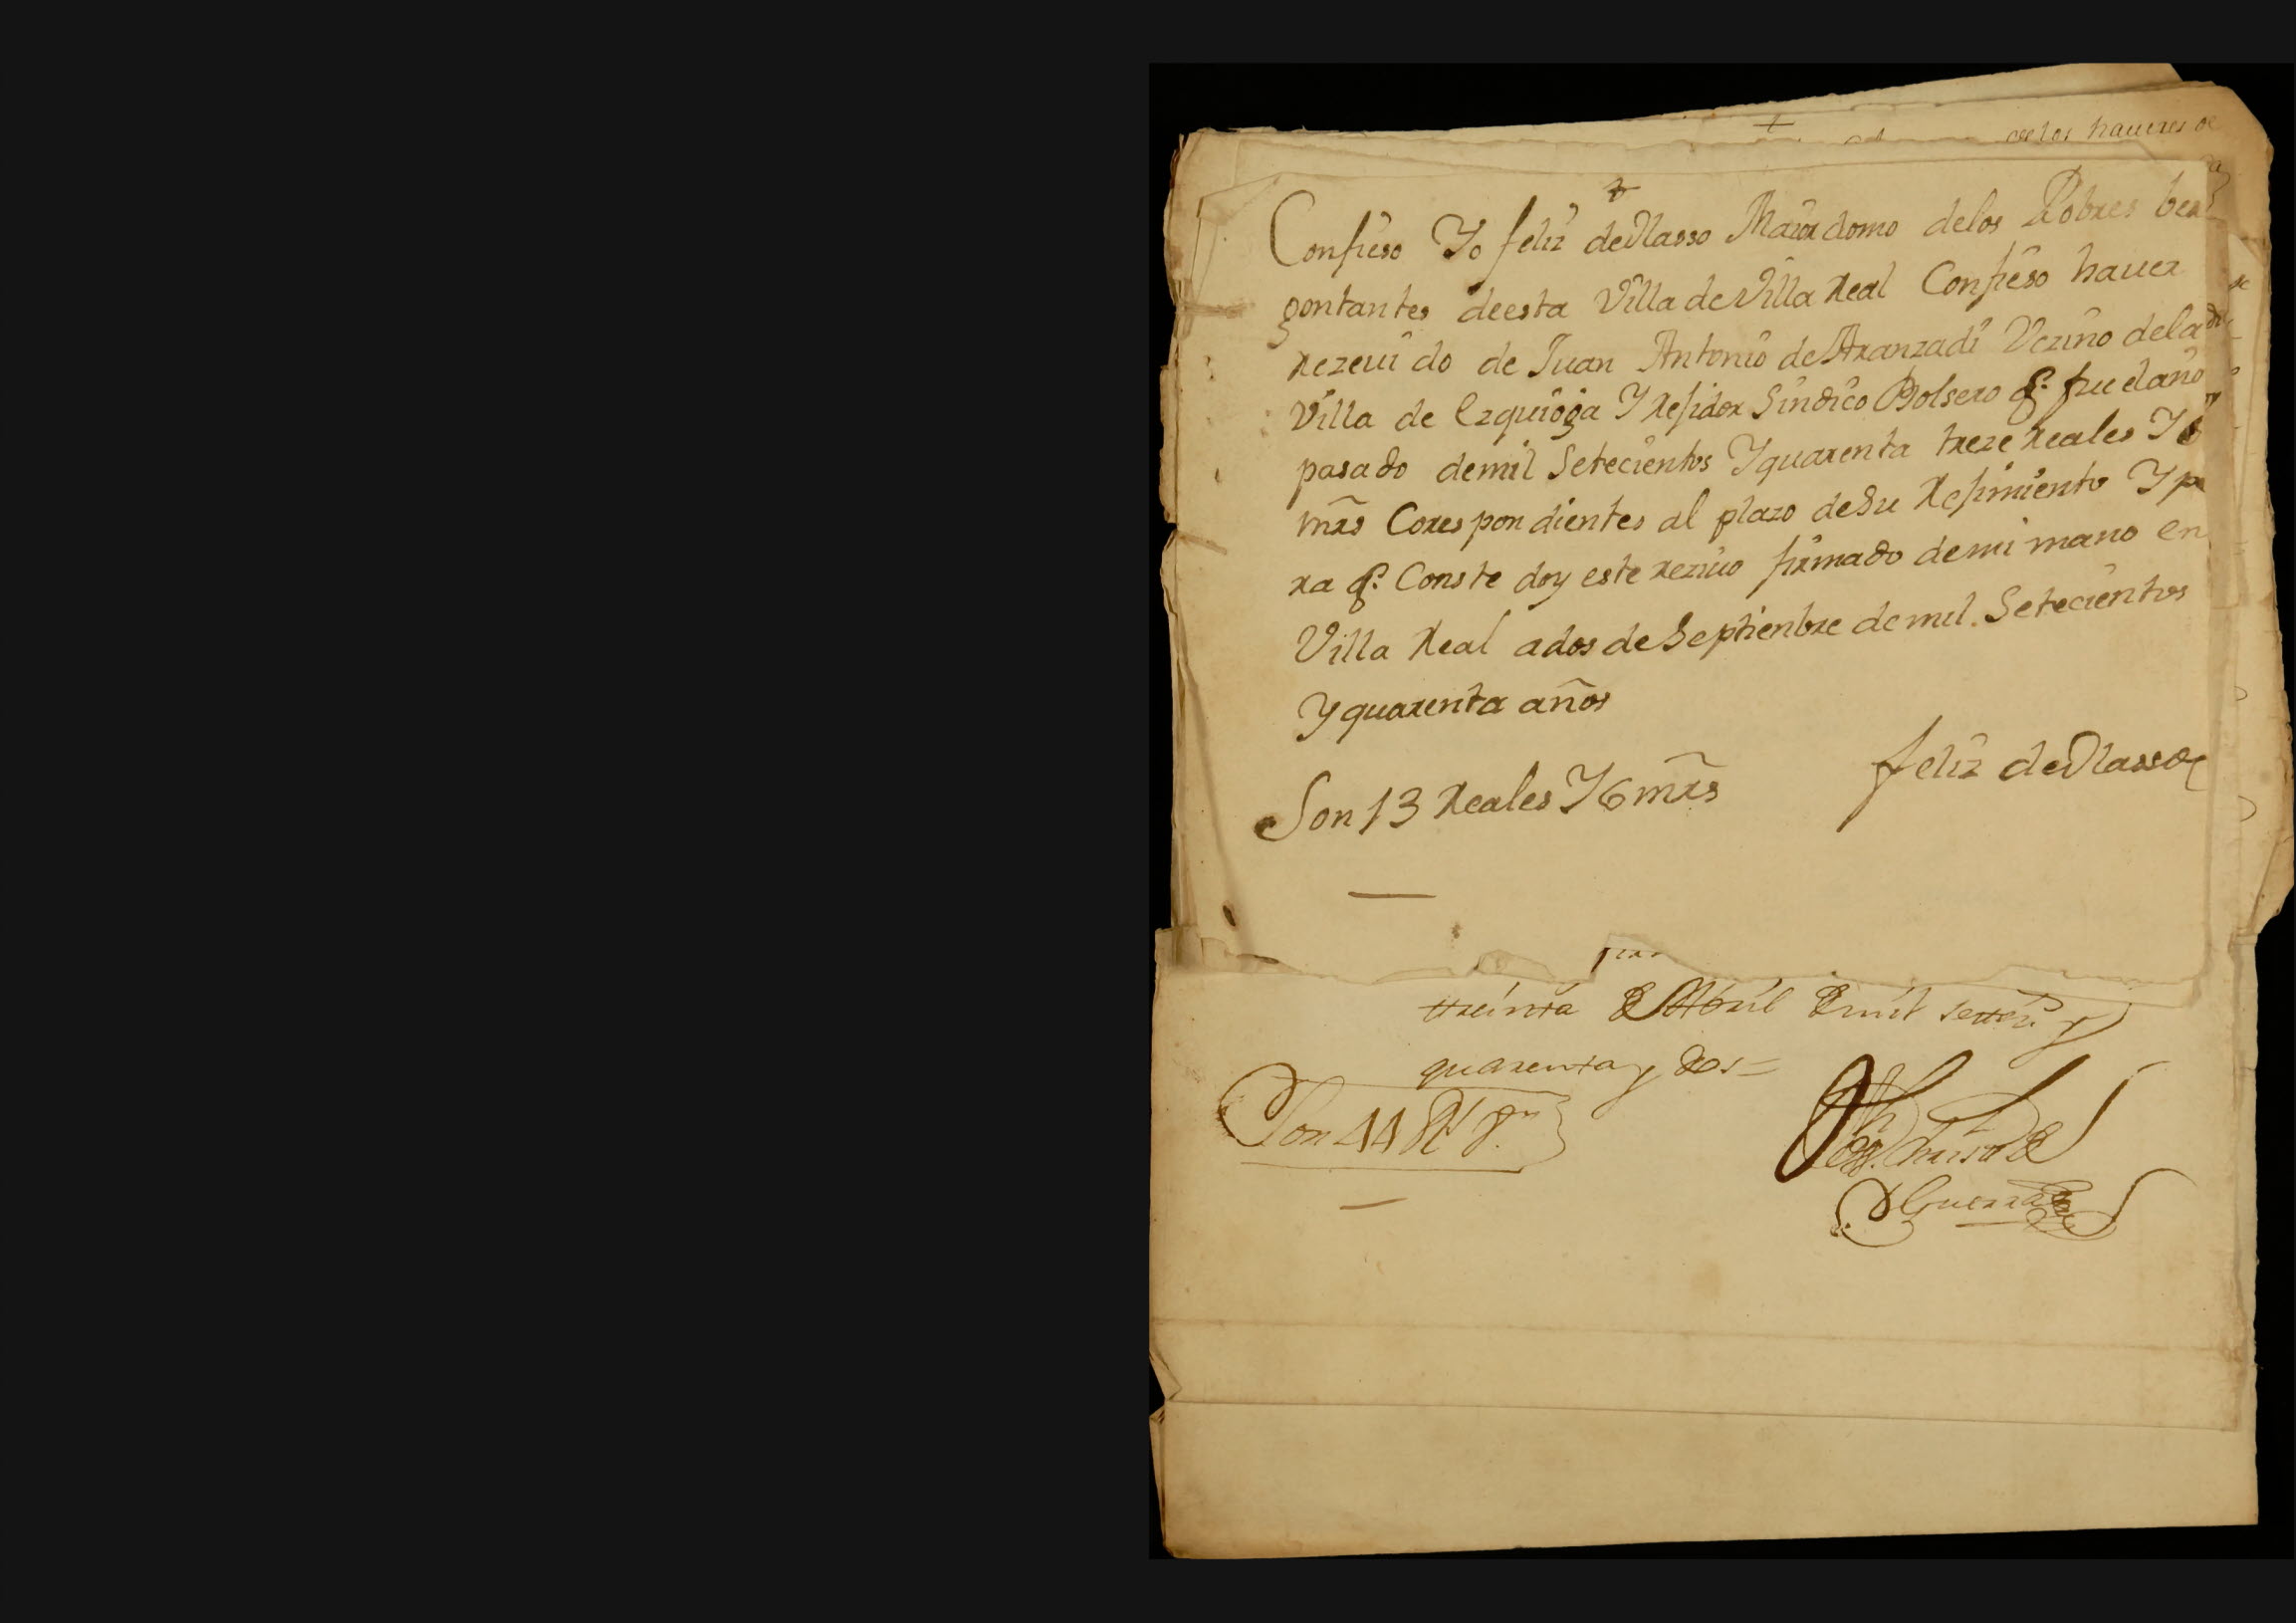 de los haueres de
Confieso Yo feliz de Olasso Maiordomo delos Pobres ber
gontantes deesta Villa de Villa Real Confieso hauer
rezeuido de Juan Antonio de Aranzadi Vezino dela
Villa de Ezquioga Y Rejidor Sindico Bolsero q.e fue elaño
pasado demil Setecientos Yquarenta treze Reales Y 6
mrs Corespondientes al plazo deSu Rejimiento Y pa
ra q.e Conste doy este reziuo firmado demi mano en
Villa Real ados deSeptienbre de mil. Setecientos
Yquarenta años
feliz de Olasso
Son 13 Reales Y 6 mrs
treinta de Abril de mil setez.s y
quarenta y dos =
Son 44 R.s v.n
Guerra